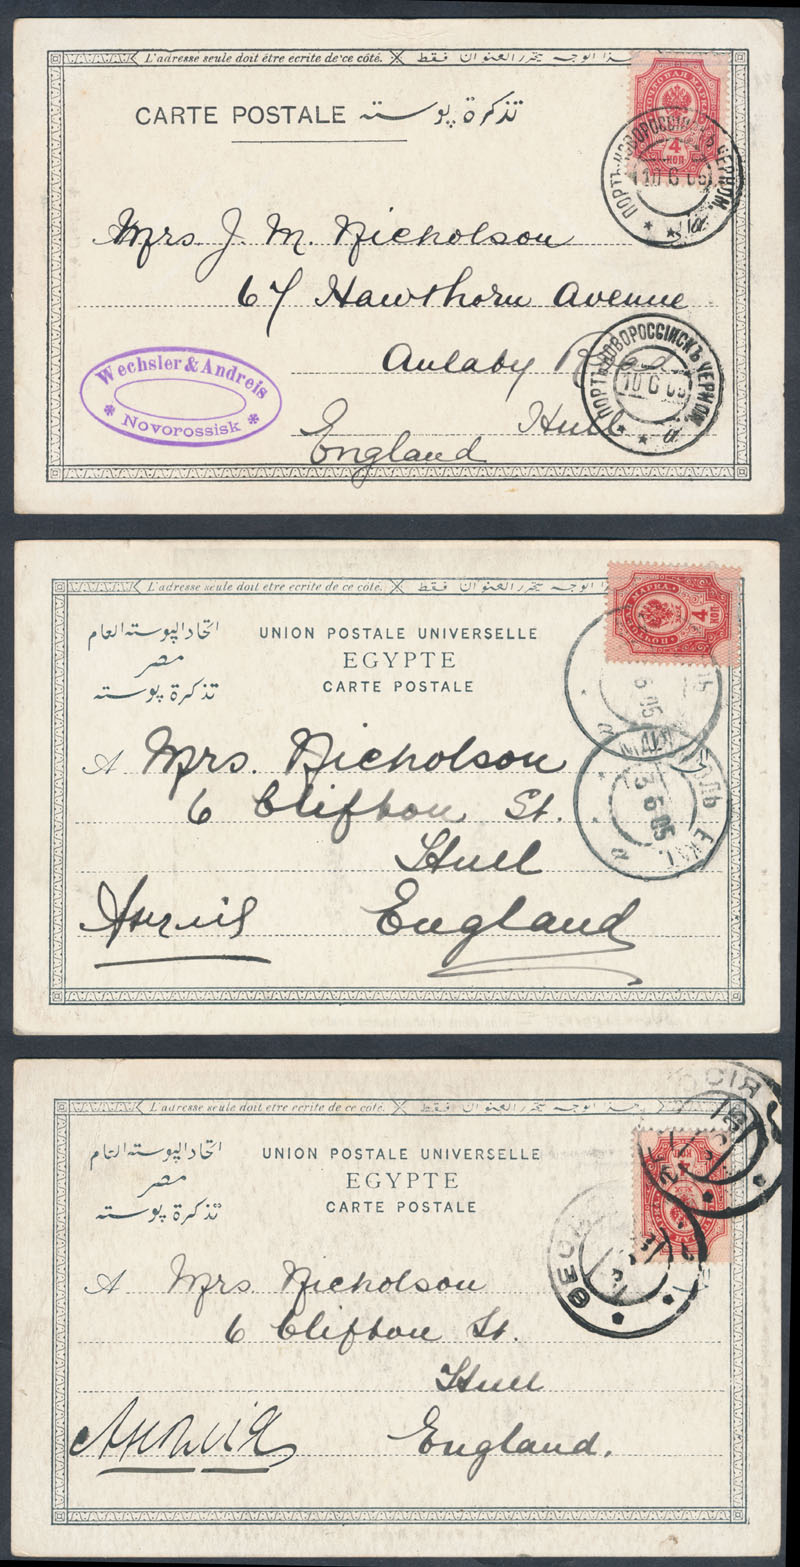 L'adresse seule doit être ecrite de ce côté. هذا الوجه يتحرر العنوان فقط
CARTE POSTALE تذكرة پوسته
4
КОП
ПОРТЪ-НОВОРОССІЙСКЪ ЧЕРНОМ.
10 6 05
Mrs J. M. Nicholson
67 Hawthorn Avenue
Anlaby Road
Hull
England
Wechsler & Andreis
Novorossisk
ПОРТЪ-НОВОРОССІЙСКЪ ЧЕРНОМ.
10 6 05
L'adresse seule doit être ecrite de ce côté. الوجه يتحرر العنوان فقط
اتحاد الپوسته العام
مصر
تذكرة پوسته
UNION POSTALE UNIVERSELLE
EGYPTE
CARTE POSTALE
ПОЧТОВАЯ МАРКА
4
КОП
A Mrs. Nicholson
6 Clifton St.
Hull
Англія England
ЕКАТ.
3 6 05
L'adresse seule doit être ecrite de ce côté. هذا الوجه يتحرر العنوان فقط
اتحاد الپوسته العام
مصر
تذكرة پوسته
UNION POSTALE UNIVERSELLE
EGYPTE
CARTE POSTALE
A Mrs Nicholson
6 Clifton St.
Hull
Англія England.